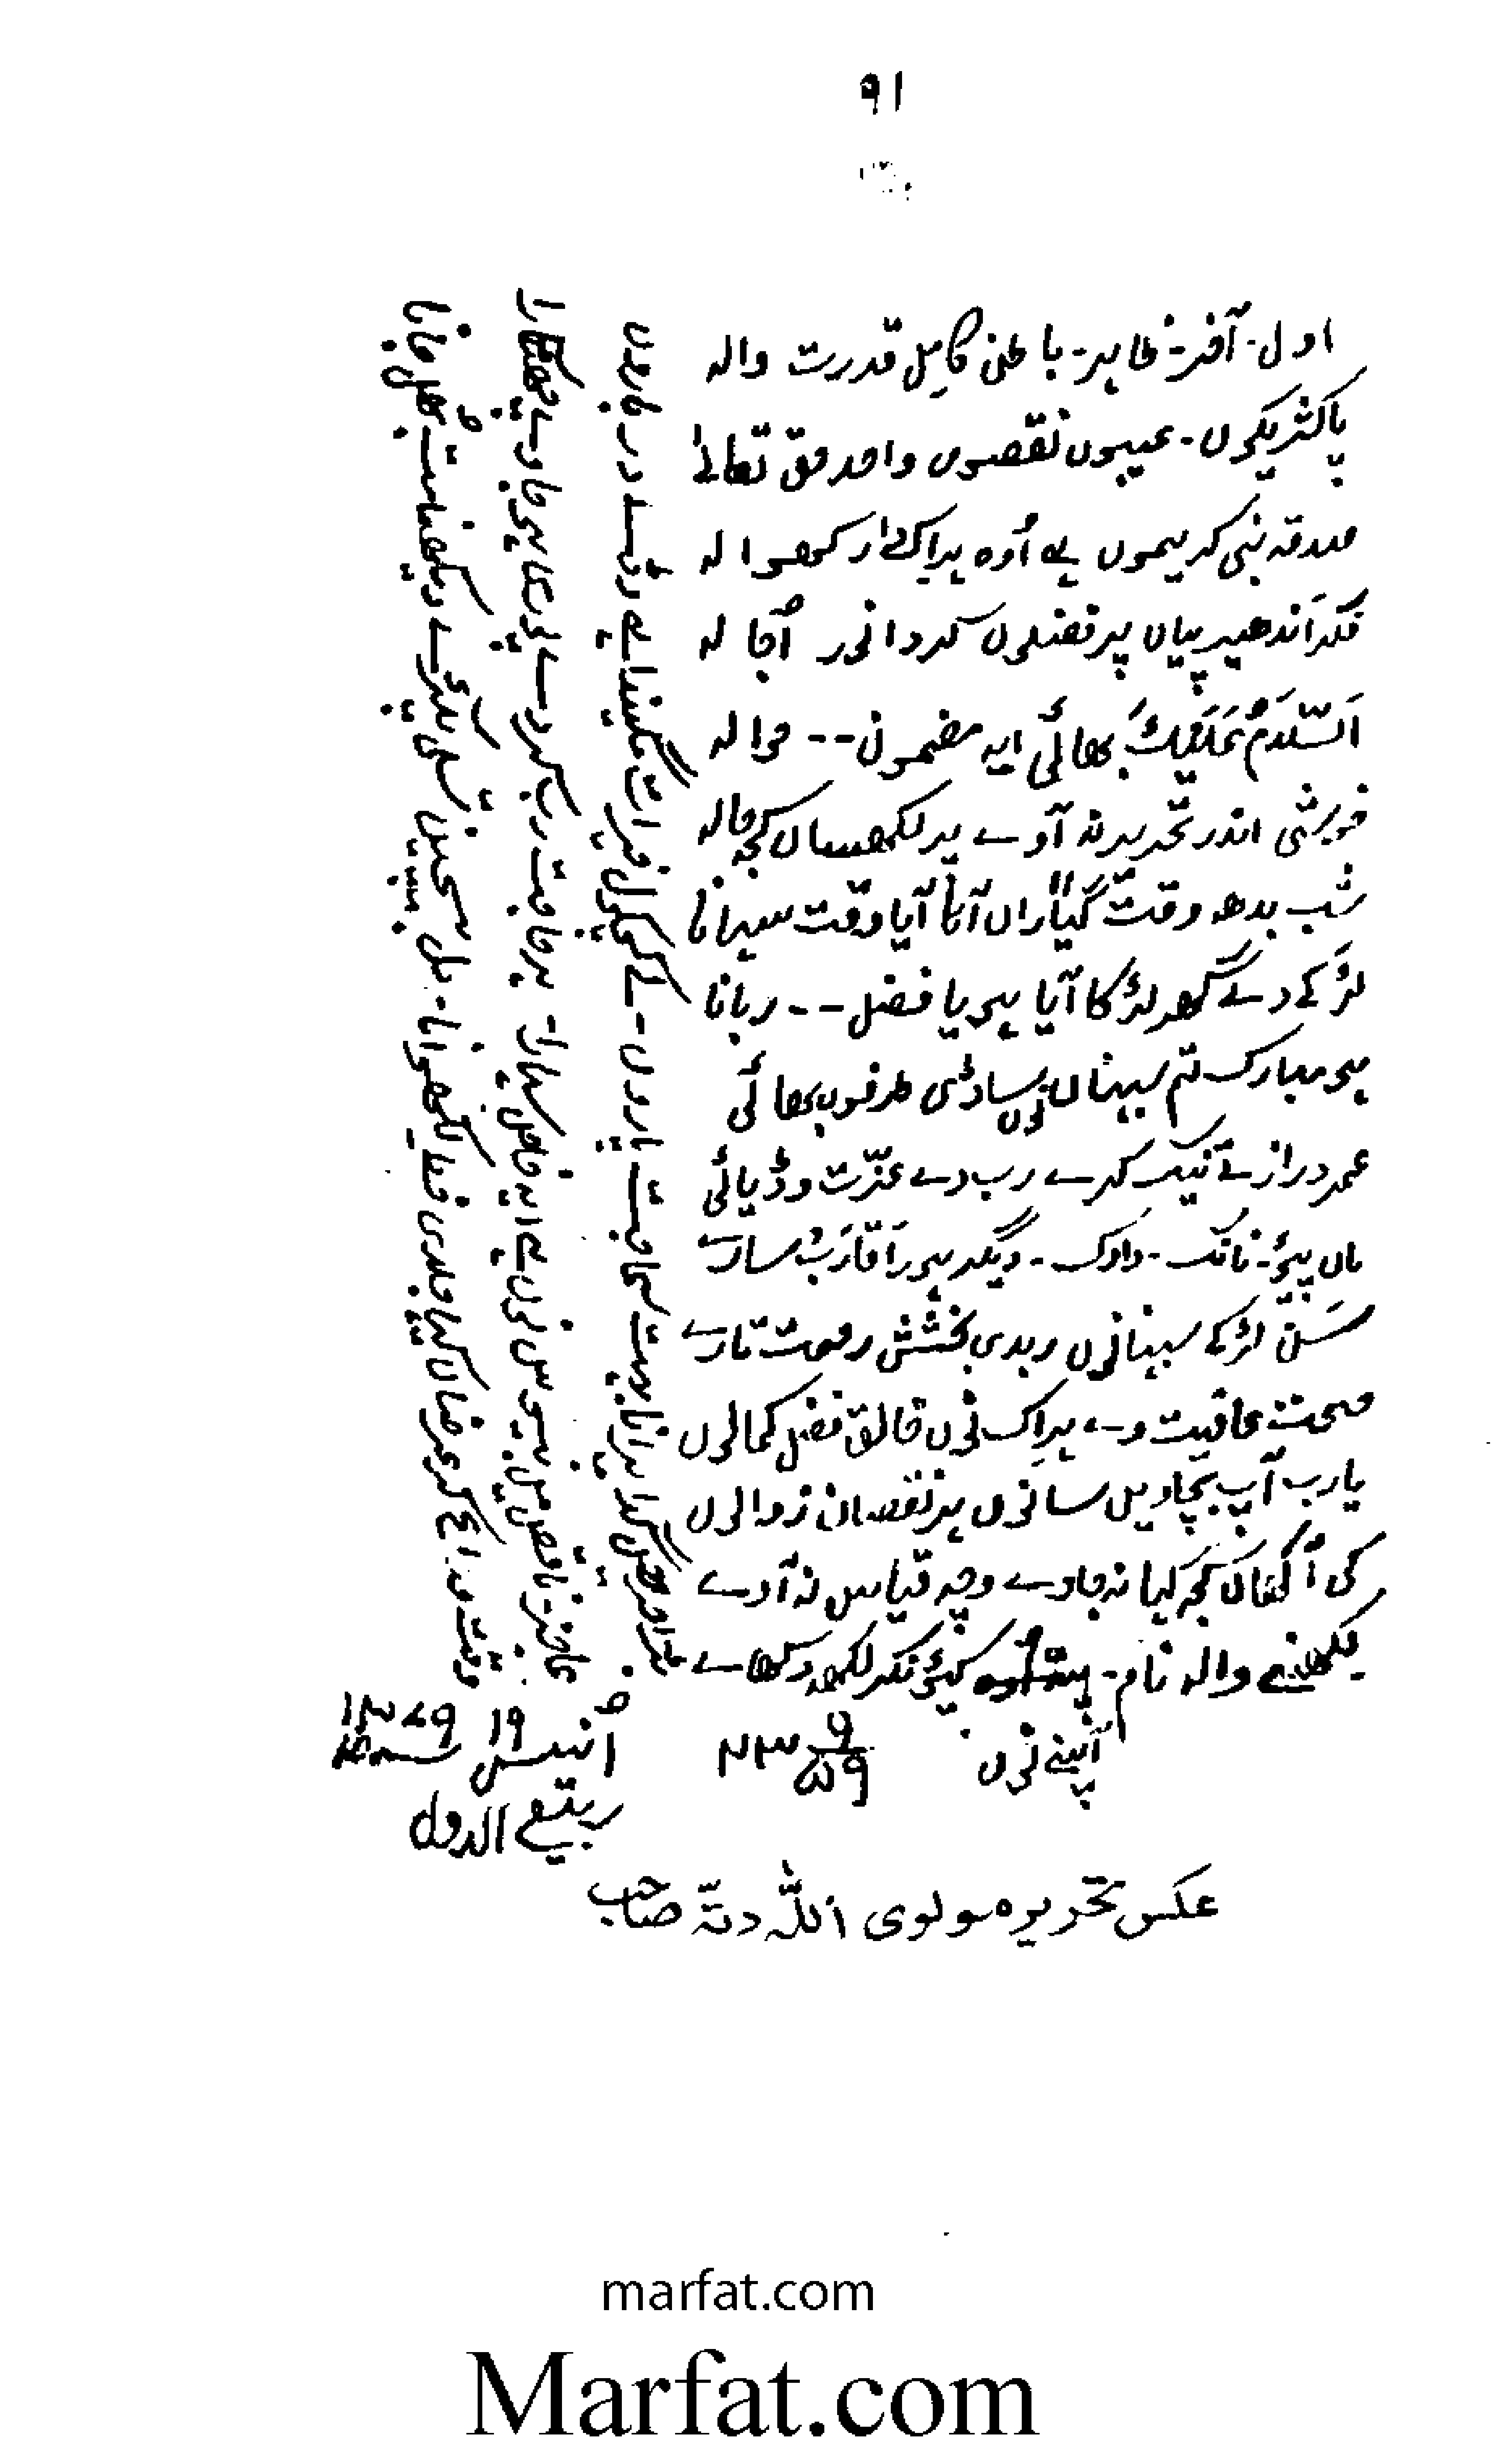 ۹۱
اول۔ آخر۔ ظاہر۔ باطن کامل قدرت والہ
پاک شریکوں۔ عیبوں نقصوں واحد حق تعالیٰ
صدقہ نبی کریموں ہے اُوہ ہراک دا رکھوالہ
فکر اندھیر پیاں پر فضلوں کردا نور اُجالہ
اَلسَّلَامُ عَلَیْکُ بھائی ایہ مضمون -- حوالہ
خوشی اندر تحریر نہ آوے پر لکھساں کجھ حالہ
شب بدھ وقت گیاراں آنا آیا وقت سہانا
لڑکے دے گھر لڑکا آیا ہویا فضل -- ربانا
ہو مبارک تم سبہناں نوں ساڈی طرفوں بھائی
عمر دراز تے نیک کرے رب دے عزّت وڈیائی
ماں پیؤ۔ نانک۔ دادک۔ دیگر ہور اَقارَب سارے
سَن لڑکے سبہنا نوں ربدی بخشش رحمت تارے
صحت عافیت دے ہراِک نوں خالق فضل کمالوں
یا رب آپ بچاویں سانوں ہر نقصان زوالوں
کی آکھاں کجھ کہیا نہ جاوے وچہ قیاس نہ آوے
لکھنے والہ نام۔ کیئی فکر لکھ دکھاے
اپنے نوں
خدا گدا پرانا بہت حاجت پاروں۔ لے کجکول خیرات منگیندا ہے درباروں
عاجز ناقص میں جیہوس نوں ہے ایہ فاضل سہارا۔ ہر حاجت رب کردے پوری جاوے چھٹکارا
وقت وداع کر عرضاں کہیا جلدی خط لکھوانا۔ مل سجن تسلی دیکھ بھل جانا
۲۳ ۹/۵۹
اُنیس ۱۹ ۱۳۷۹
ربیع الاول
عکس تحریرہ مولوی اللہ دتہ صاحب
marfat.com
Marfat.com